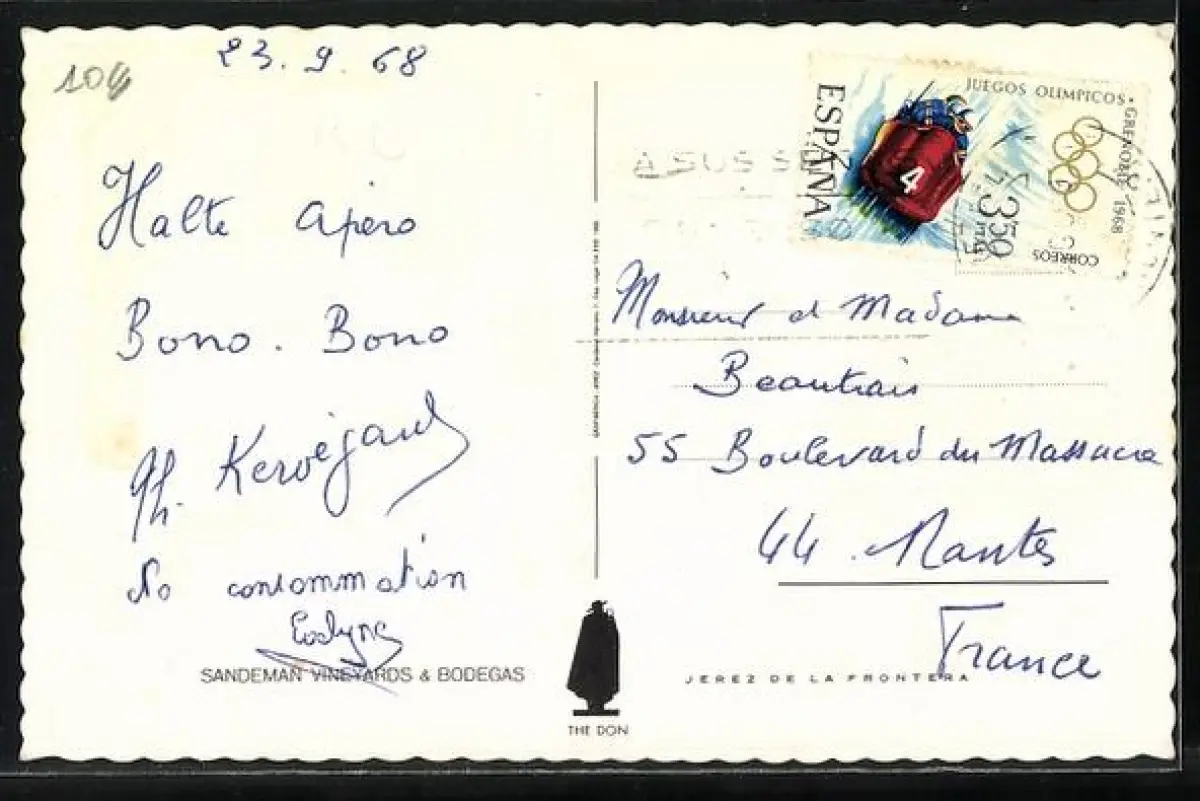 23.9.68
106
Halte apéro
Bono. Bono
Ph. Kervégant
No consommation
Evelyne
SANDEMAN VINEYARDS & BODEGAS
THE DON
JEREZ DE LA FRONTERA
A SUS
ESPAÑA
JUEGOS OLIMPICOS · GRENOBLE 1968
4
3'50
PTAS
CORREOS
Monsieur et Madame
Beautrais
55 Boulevard du Massacre
44. Nantes
France